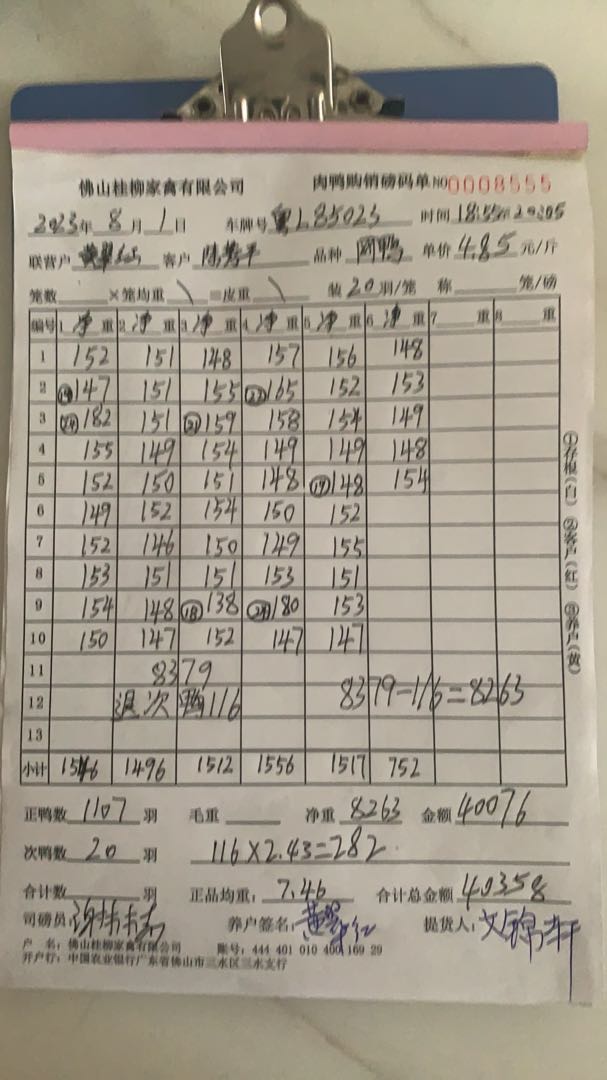 佛山桂柳家禽有限公司 肉鸭购销磅码单 NO 0008555
2023年 8 月 1 日 车牌号 粤L85023 时间 18:55至20:05
联营户 黄翠红 客户 品种 肉鸭 单价 4.85 元/斤
笼数 ×笼均重 \ =皮重 \ 装 20 羽/笼 称 笼/磅
编号 1 净 重 2 净 重 3 净 重 4 净 重 5 净 重 6 净 重 7 重 8 重
1 152 151 148 157 156 148
2 ⑲147 151 155 165 152 153
3 ㉔182 151 ㉑159 158 154 149
4 155 149 154 149 149 148
5 152 150 151 148 ⑲148 154
6 149 152 154 150 152
7 152 146 150 149 155
8 153 151 151 153 151
9 154 148 ⑱138 ㉔180 153
10 150 147 152 147 147
11 8379
12 退次鸭116 8379-116=8263
13
小计 1546 1496 1512 1556 1517 752
正鸭数 1107 羽 毛重 净重 8263 金额 40076
次鸭数 20 羽 116×2.43=282.
合计数 羽 正品均重: 7.46 合计总金额 40358
司磅员: 养户签名: 黄翠红 提货人:
户 名: 佛山桂柳家禽有限公司 账号: 444 401 010 400 169 29
开户行: 中国农业银行广东省佛山市三水区三水支行
①存根(白) ②客户(红) ③养户(黄)